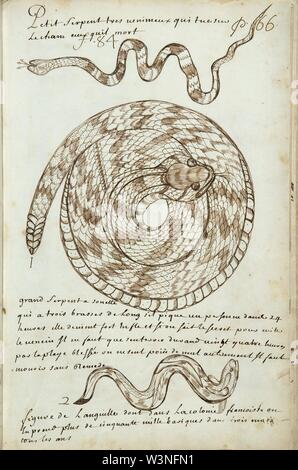 Petit Serpent tres venimeux qui tue sur
Le champ ceux quil mort
P. 66
84
grand Serpent a sonette
qui a trois brasses de Long sil pique un personne dans 24
heures elle devient fort enfle et si on fait le secret pour oster
le venein il faut que ce soit durant vingt quatre heures
la playe on ne sent point de mal autrement il faut
mourir sans Remede
2
figure de Languille dont dans la colonie francoise on
en prend plus de cinquante mille bariques dans trois mois
tous les ans